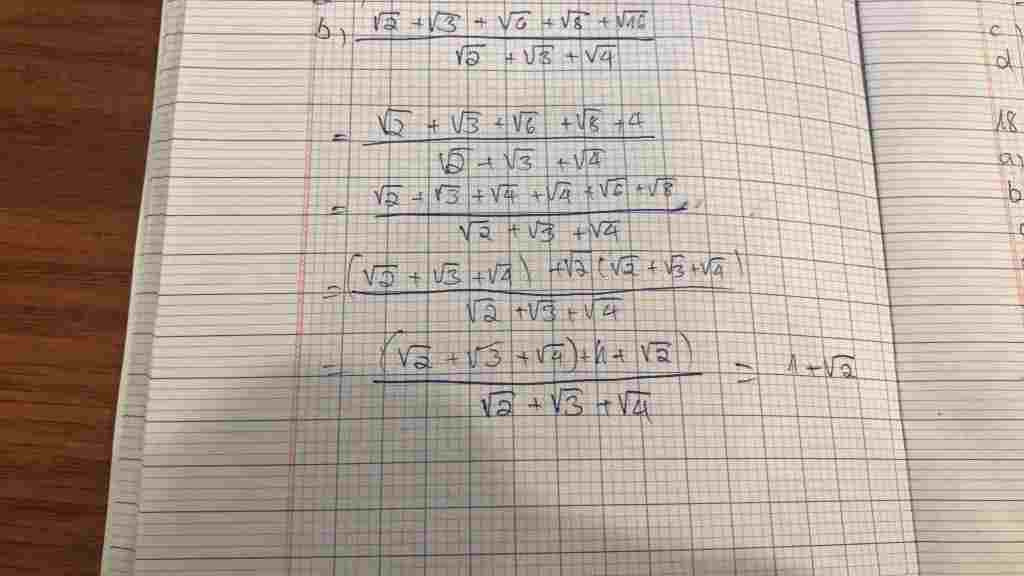 b, (√2 + √3 + √6 + √8 + √16) / (√2 + √3 + √4)
= (√2 + √3 + √6 + √8 + 4) / (√2 + √3 + √4)
= (√2 + √3 + √4 + √4 + √6 + √8) / (√2 + √3 + √4)
= ((√2 + √3 + √4) + √2 (√2 + √3 + √4)) / (√2 + √3 + √4)
= ((√2 + √3 + √4) + 1 + √2) / (√2 + √3 + √4) = 1 + √2
c)
d
18
a,
b